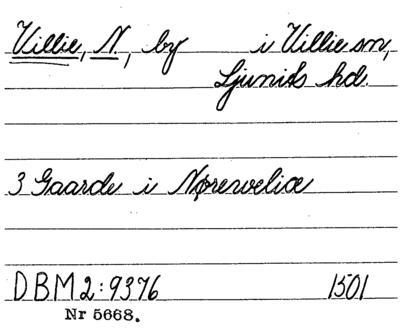 Villie, N., by i Villie sn,
Ljunits hd.
3 Gaarde i Nørreveliæ
DBM 2:9376 1501
Nr 5668.